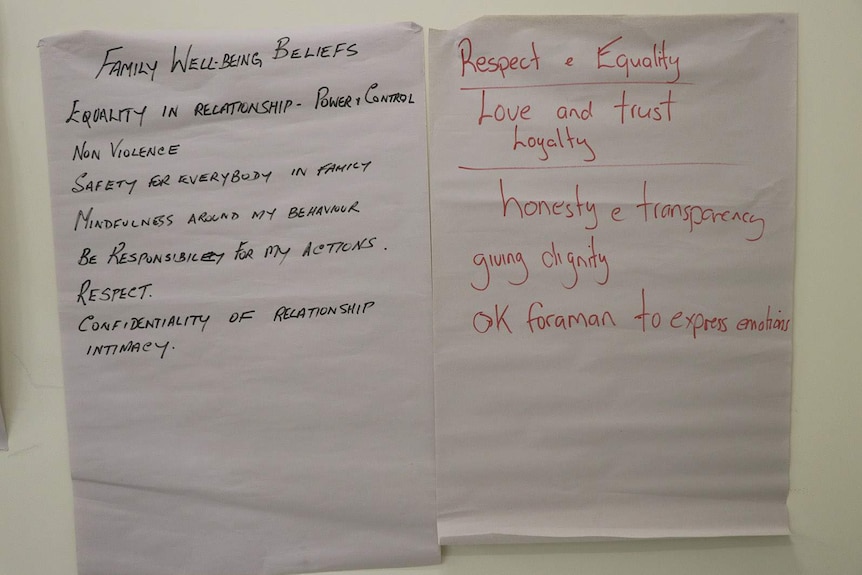 FAMILY WELL-BEING BELIEFS
EQUALITY IN RELATIONSHIP - POWER & CONTROL
NON VIOLENCE
SAFETY FOR EVERYBODY IN FAMILY
MINDFULNESS AROUND MY BEHAVIOUR
BE RESPONSIBILEY FOR MY ACTIONS.
RESPECT.
CONFIDENTIALITY OF RELATIONSHIP
INTIMACY.
Respect e Equality
Love and trust
Loyalty
honesty e transparency
giving dignity
OK foraman to express emotions